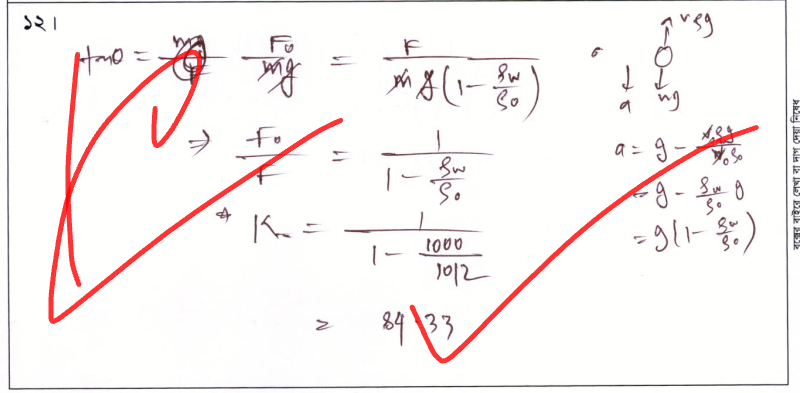 ১২।
tanθ = F₀/mg = F/(mg(1 - ρw/ρ₀))
⇒ F₀/F = 1/(1 - ρw/ρ₀)
K = 1/(1 - 1000/1012)
= 84.33
vρg
a mg
a = g - v₀ρg/v₀ρ₀
= g - ρw/ρ₀ g
= g(1 - ρw/ρ₀)
বক্সের বাইরে লেখা বা দাগ দেয়া নিষেধ